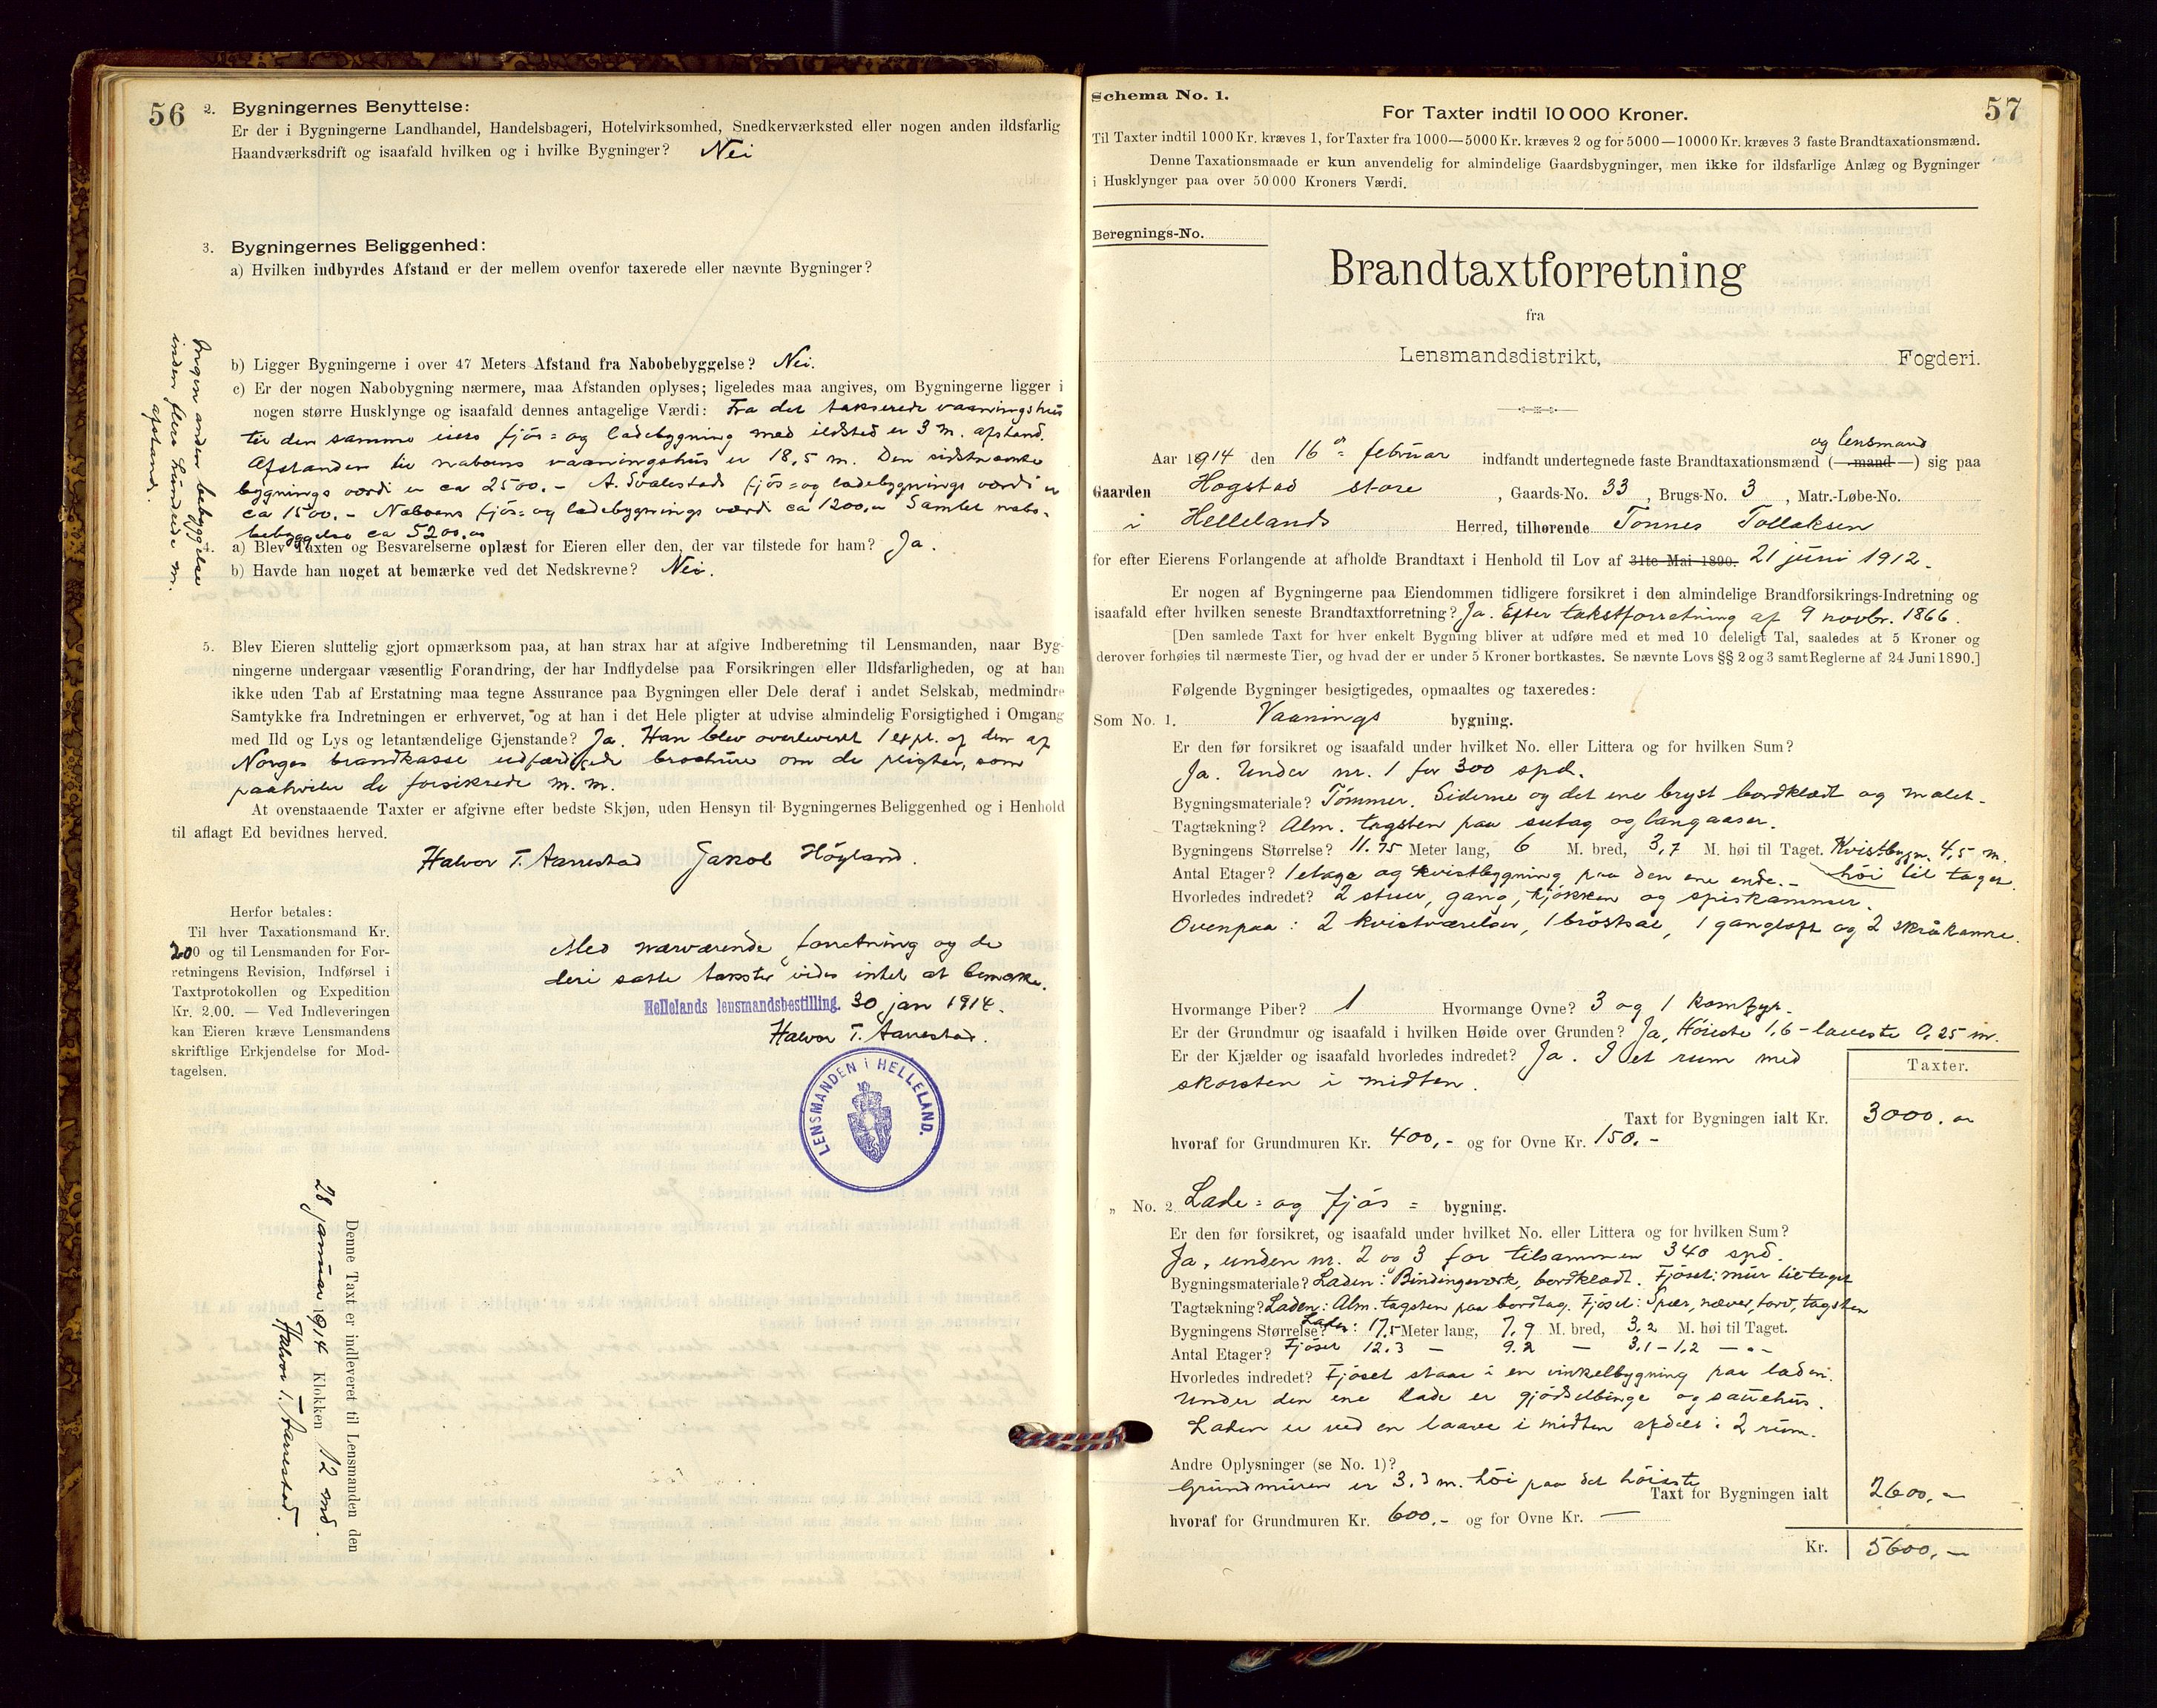 56
2. Bygningernes Benyttelse:
Er der i Bygningerne Landhandel, Handelsbageri, Hotelvirksomhed, Snedkerværksted eller nogen anden ildsfarlig
Haandværksdrift og isaafald hvilken og i hvilke Bygninger? Nei
3. Bygningernes Beliggenhed:
a) Hvilken indbyrdes Afstand er der mellem ovenfor taxerede eller nævnte Bygninger?
b) Ligger Bygningerne i over 47 Meters Afstand fra Nabobebyggelse? Nei.
c) Er der nogen Nabobygning nærmere, maa Afstanden oplyses; ligeledes maa angives, om Bygningerne ligger i
nogen større Husklynge og isaafald dennes antagelige Værdi: Fra det takserede vaaningshus
til den samme eiers fjös= og ladebygning med ildsted er 3 m. afstand.
Afstanden til naboens vaaningshus er 18,5 m. Den sidstnævnte
bygnings værdi er ca 2500.- A. Svalestads fjös= og ladebygnings værdi er
ca 1500.- Naboens fjös= og ladebygnings værdi ca 1200,- Samlet nabo-
bebyggelse ca 5200.-
Ingen anden bebyggelse
inden flere hundrede m.
afstand.
a) Blev Taxten og Besvarelserne oplæst for Eieren eller den, der var tilstede for ham? Ja.
b) Havde han noget at bemærke ved det Nedskrevne? Nei.
5. Blev Eieren sluttelig gjort opmærksom paa, at han strax har at afgive Indberetning til Lensmanden, naar Byg-
ningerne undergaar væsentlig Forandring, der har Indflydelse paa Forsikringen eller Ildsfarligheden, og at han
ikke uden Tab af Erstatning maa tegne Assurance paa Bygningen eller Dele deraf i andet Selskab, medmindre
Samtykke fra Indretningen er erhvervet, og at han i det Hele pligter at udvise almindelig Forsigtighed i Omgang
med Ild og Lys og letantændelige Gjenstande? Ja. Han blev overleveret 1 expl. af den af
Norges brandkasse udfærdigede brochure om de pligter, som
paahviler de forsikrede m. m.
At ovenstaaende Taxter er afgivne efter bedste Skjøn, uden Hensyn til Bygningernes Beliggenhed og i Henhold
til aflagt Ed bevidnes herved.
Halvor T. Aarrestad Jakob Höyland.
Herfor betales:
Til hver Taxationsmand Kr.
200 og til Lensmanden for For-
retningens Revision, Indførsel i
Taxtprotokollen og Expedition
Kr. 2,00. — Ved Indleveringen
kan Eieren kræve Lensmandens
skriftlige Erkjendelse for Mod-
tagelsen.
Med nærværende forretning og de
deri satte takster vides intet at bemerke.
Hellelands lensmandsbestilling. 30 jan 1914.
Halvor T. Aarrestad.
LENSMANDEN I HELLELAND.
Denne Taxt er indleveret til Lensmanden den
28 januar 1914 Klokken 12 md.
Halvor T. Aarrestad.
57
Schema No. 1.
For Taxter indtil 10 000 Kroner.
Til Taxter indtil 1000 Kr. kræves 1, for Taxter fra 1000—5000 Kr. kræves 2 og for 5000—10000 Kr. kræves 3 faste Brandtaxationsmænd.
Denne Taxationsmaade er kun anvendelig for almindelige Gaardsbygninger, men ikke for ildsfarlige Anlæg og Bygninger
i Husklynger paa over 50 000 Kroners Værdi.
Beregnings-No.
Brandtaxtforretning
fra
Lensmandsdistrikt, Fogderi.
og lensmand
Aar 1914 den 16de februar indfandt undertegnede faste Brandtaxationsmænd (—mand—) sig paa
Gaarden Hogstad store, Gaards-No. 33, Brugs-No. 3, Matr.-Løbe-No.
i Hellelands Herred, tilhørende Tönnes Tollaksen
for efter Eierens Forlangende at afholde Brandtaxt i Henhold til Lov af 31te Mai 1890. 21 juni 1912.
Er nogen af Bygningerne paa Eiendommen tidligere forsikret i den almindelige Brandforsikrings-Indretning og
isaafald efter hvilken seneste Brandtaxtforretning? Ja. Efter takstforretning af 9 novbr. 1866.
[Den samlede Taxt for hver enkelt Bygning bliver at udføre med et med 10 deleligt Tal, saaledes at 5 Kroner og
derover forhøies til nærmeste Tier, og hvad der er under 5 Kroner bortkastes. Se nævnte Lovs §§ 2 og 3 samt Reglerne af 24 Juni 1890.]
Følgende Bygninger besigtigedes, opmaaltes og taxeredes:
Som No. 1. Vaanings bygning.
Er den før forsikret og isaafald under hvilket No. eller Littera og for hvilken Sum?
Ja. Under nr. 1 for 300 spd.
Bygningsmateriale? Tömmer. Siderne og det ene bryst bordklædt og malet.
Tagtækning? Alm. tagsten paa sutag og langaaser.
Bygningens Størrelse? 11.75 Meter lang, 6 M. bred, 3,7 M. høi til Taget. Kvistbygn. 4,5 m.
Antal Etager? 1 etage og kvistbygning paa den ene ende.- höi til taget.
Hvorledes indredet? 2 stuer, gang, kjökken og spiskammer.
Ovenpaa: 2 kvistværelser, 1 bröstsal, 1 gangloft og 2 skråkamre.
Hvormange Piber? 1 Hvormange Ovne? 3 og 1 komfyr.
Er der Grundmur og isaafald i hvilken Høide over Grunden? Ja, Höieste 1,6 - laveste 0,25 m.
Er der Kjælder og isaafald hvorledes indredet? Ja. I et rum med
skorsten i midten.
Taxter.
Taxt for Bygningen ialt Kr. 3000.-
hvoraf for Grundmuren Kr. 400,- og for Ovne Kr. 150.-
„ No. 2 Lade= og fjös= bygning.
Er den før forsikret, og isaafald under hvilket No. eller Littera og for hvilken Sum?
Ja, under nr. 2 og 3 for tilsammen 340 spd.
Bygningsmateriale? Laden: Bindingsværk, bordklædt. Fjöset: mur til taget
Tagtækning? Laden: Alm. tagsten paa bordtag. Fjöset: Spær, næver, torv, tagsten
Bygningens Størrelse? Laden: 17,5 Meter lang, 7,9 M. bred, 3,2 M. høi til Taget.
Antal Etager? Fjöset 12.3 — 9.2 — 3,1-1,2 — „ —
Hvorledes indredet? Fjöset staar i en vinkelbygning paa laden.
Under den ene lade er gjödselbinge og sauehus.
Laden er ved en laave i midten afdelt i 2 rum.
Andre Oplysninger (se No. 1)?
Grundmuren er 3.3 m. höi paa det höieste
Taxt for Bygningen ialt 2600,-
hvoraf for Grundmuren Kr. 600,- og for Ovne Kr. —
Kr. 5600,-